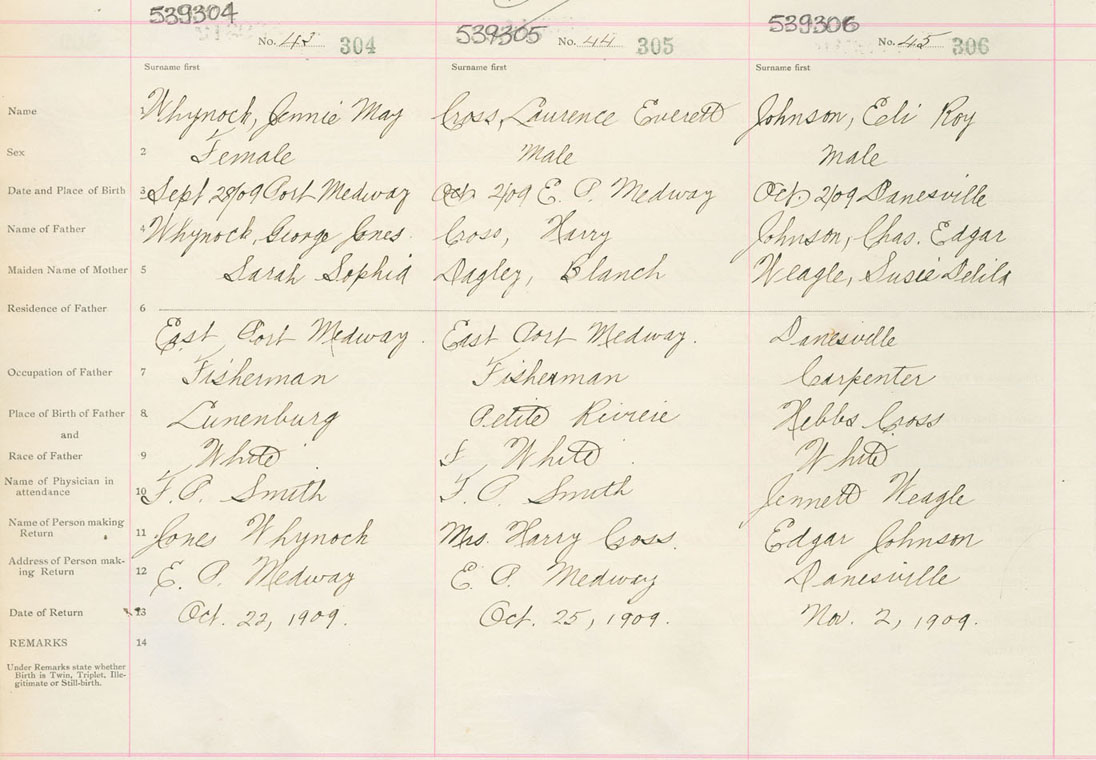 539304 539305 539306
No. 43 304 No. 44 305 No. 45 306
Surname first Surname first Surname first
Name 1 Whynock, Jennie May Cross, Laurence Everett Johnson, Eeli Roy
Sex 2 Female Male Male
Date and Place of Birth 3 Sept 28/09 Port Medway Oct 2/09 E. P. Medway Oct 2/09 Danesville
Name of Father 4 Whynock, George Jones. Cross, Harry Johnson, Chas. Edgar
Maiden Name of Mother 5 Sarah Sophia Dagley, Blanch Weagle, Susie Delila
Residence of Father 6
East Port Medway. East Port Medway. Danesville
Occupation of Father 7 Fisherman Fisherman Carpenter
Place of Birth of Father 8 Lunenburg Petite Riviere Hebbs Cross
and
Race of Father 9 White White White
Name of Physician in
attendance 10 F. P. Smith F. P. Smith Jennett Weagle
Name of Person making
Return 11 Jones Whynock Mrs. Harry Cross. Edgar Johnson
Address of Person mak-
ing Return 12 E. P. Medway E. P. Medway Danesville
Date of Return 13 Oct. 22, 1909. Oct. 25, 1909. Nov. 2, 1909.
REMARKS 14
Under Remarks state whether
Birth is Twin, Triplet, Ille-
gitimate or Still-birth.